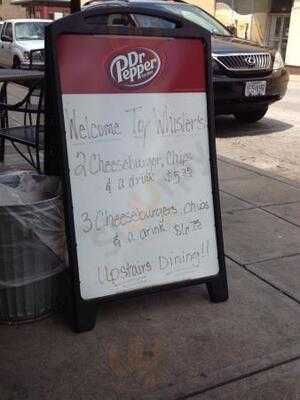 Dr Pepper
Welcome To Whisler's
2 Cheeseburger, Chips
& a drink $5
3 Cheeseburgers, Chips
& a drink $6
Upstairs Dining!!